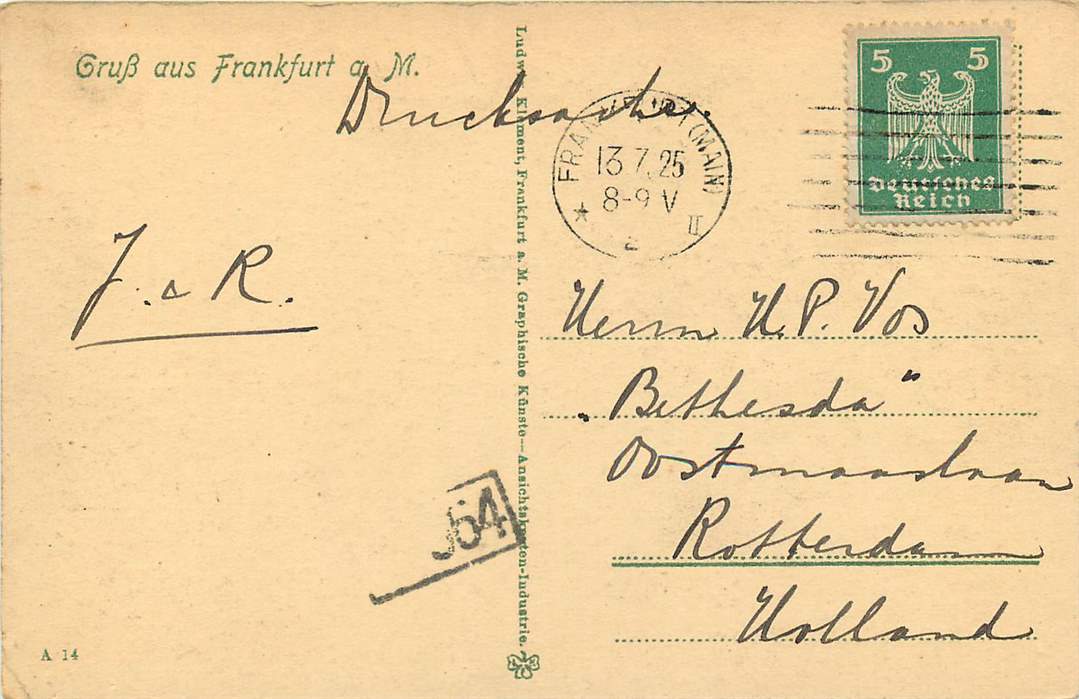 Gruß aus Frankfurt a. M.
Drucksache.
FRANKFURT (MAIN)
13.7.25
8-9 V
★ a II
5 5
Deutsches
Reich
J. & R.
Herrn H. P. Vos
„Bethesda"
Oostmaaslaan
Rotterdam
Holland
564
Ludwig Klement, Frankfurt a. M. Graphische Künste—Ansichtskarten-Industrie.
A 14